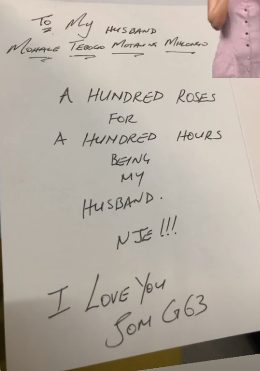 To My HUSBAND
MOHALE TEBOGO MOTAUNG MHLONGO
A HUNDRED ROSES
FOR
A HUNDRED HOURS
BEING
MY
HUSBAND.
NJE!!!
I LOVE YOU
SOM G63